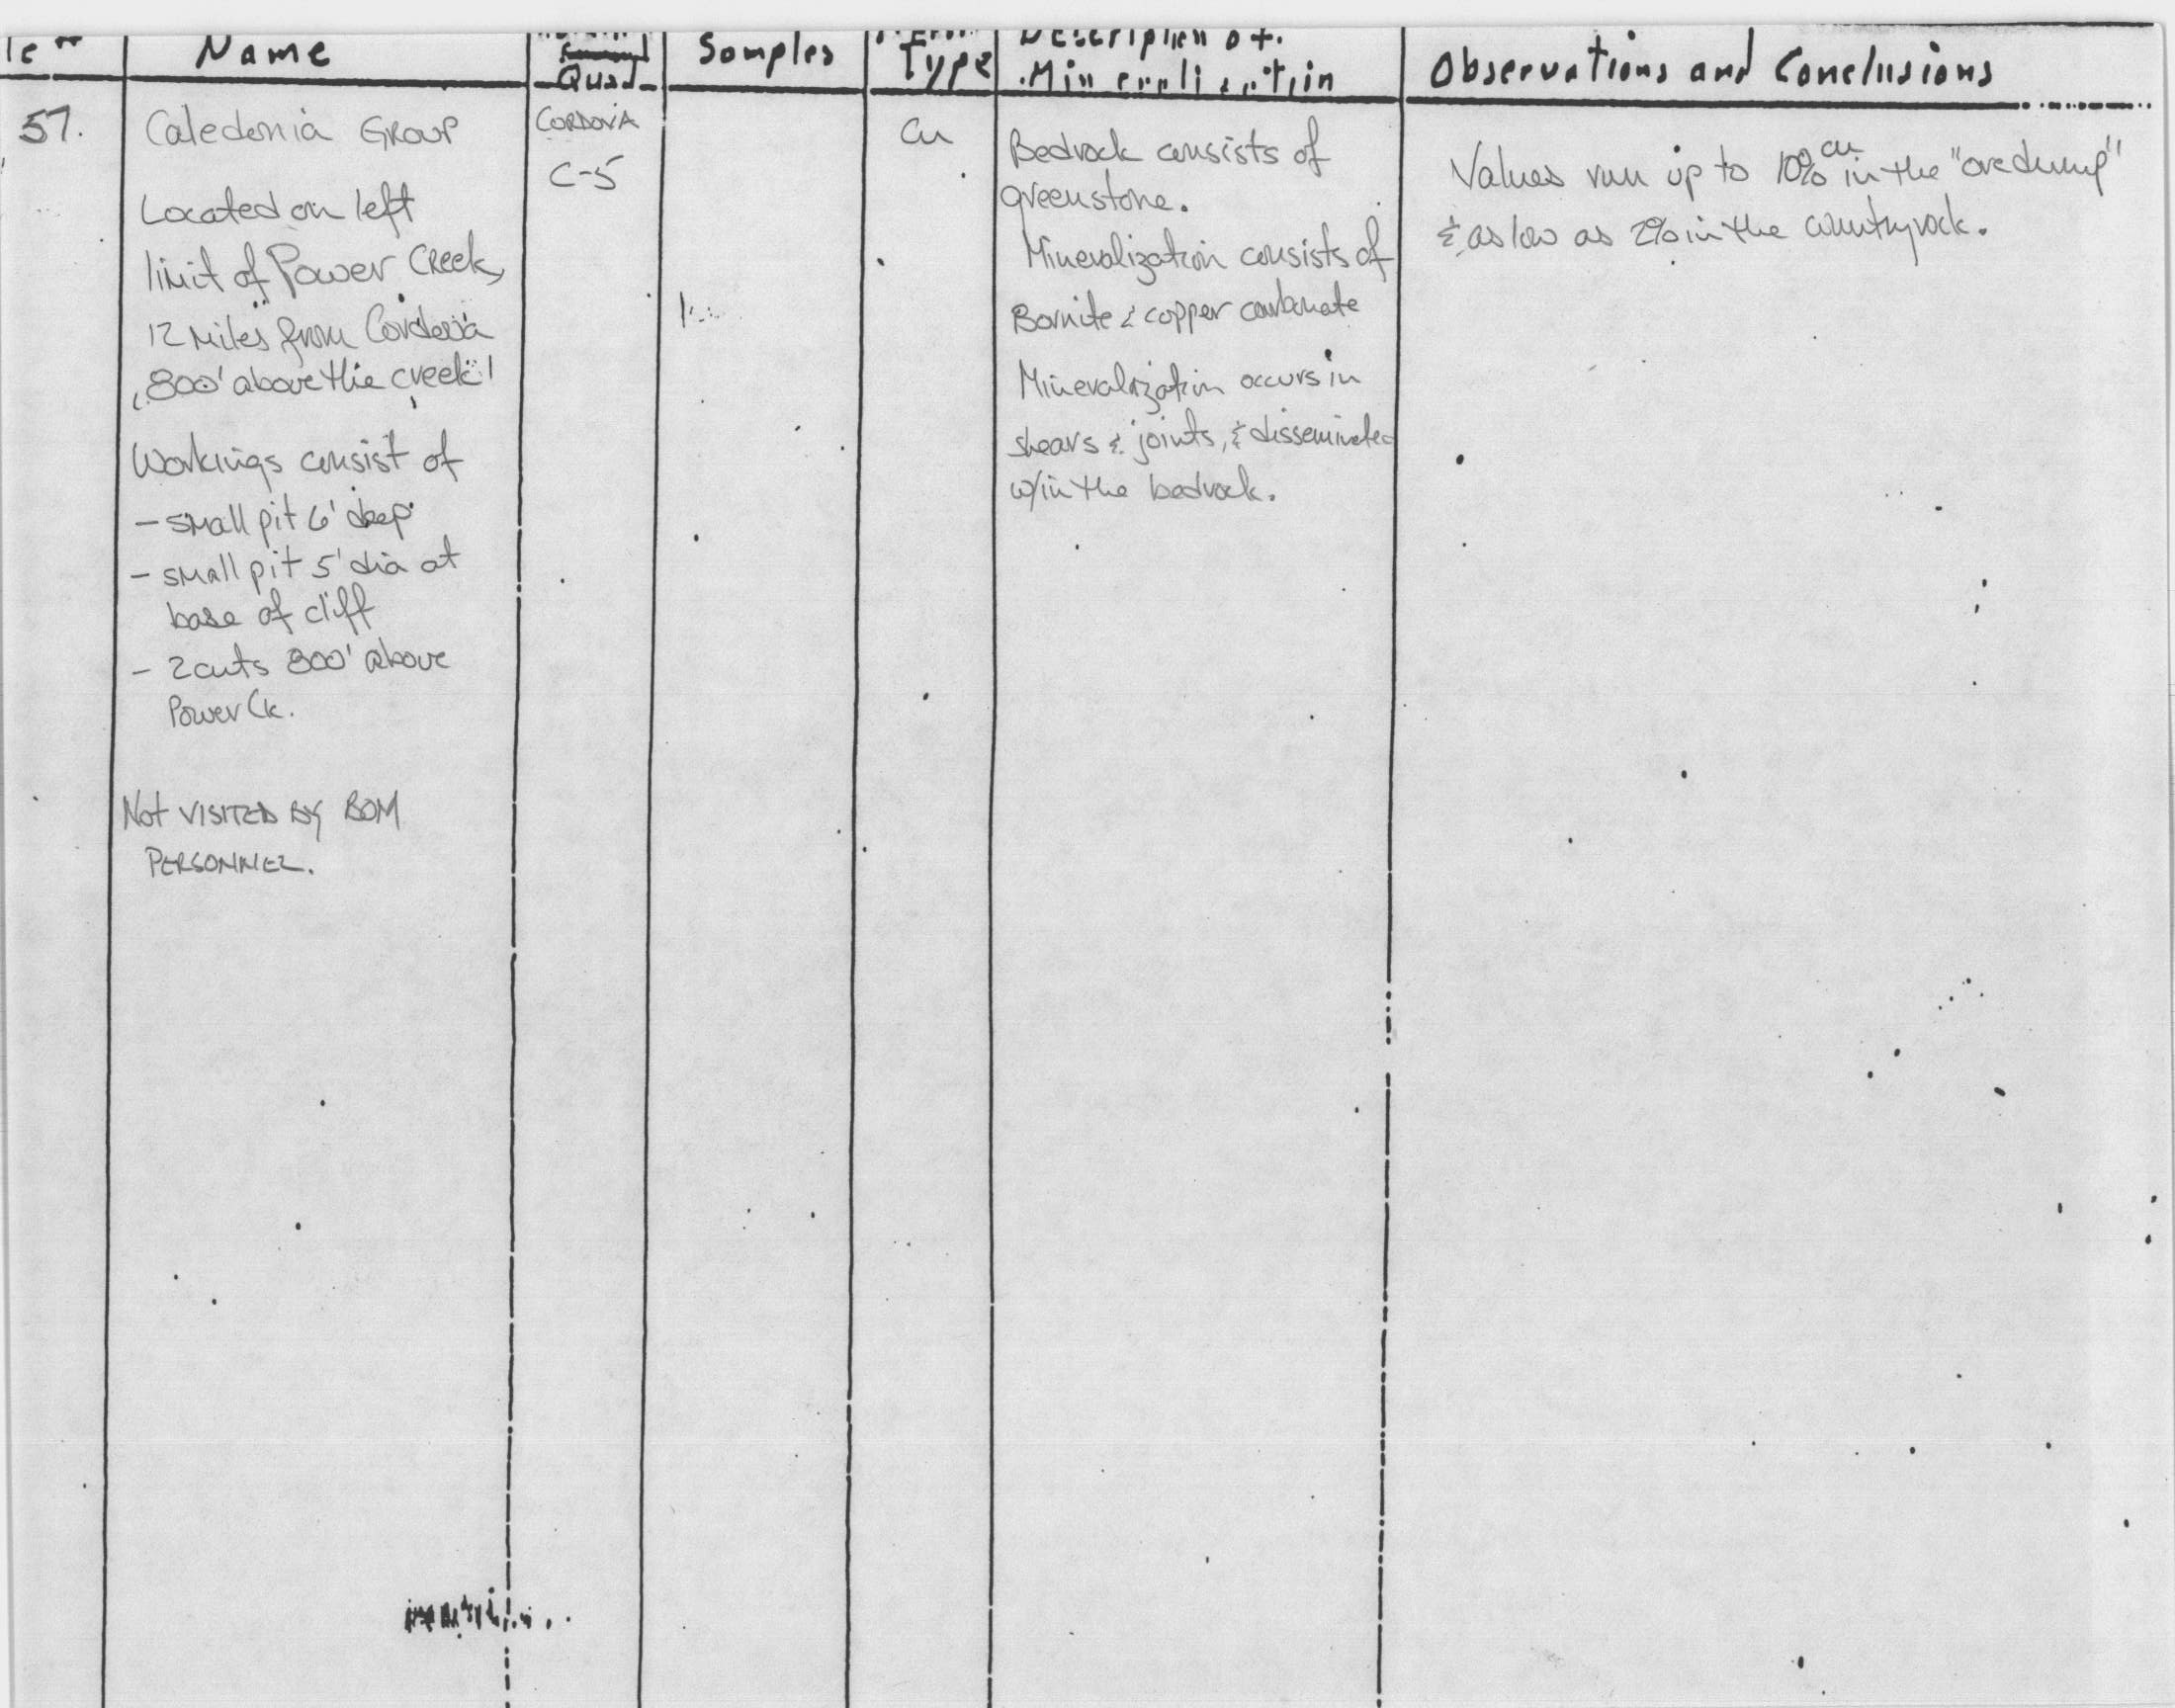 Name
Quad
Samples
Type
Description of
Mineralization
Observations and Conclusions
57.
Caledonia Group
Located on left
limit of Power Creek,
12 Miles from Cordova
800' above the creek
Workings consist of
- small pit 6' deep
- small pit 5' dia at
base of cliff
- 2 cuts 800' above
Power Ck.
Not VISITED BY BOM
PERSONNEL.
CORDOVA
C-5
Cu
Bedrock consists of
greenstone.
Mineralization consists of
Bornite & copper carbonate
Mineralization occurs in
shears & joints, & disseminated
w/in the bedrock.
Values run up to 10% cu in the "ore dump"
& as low as 2% in the country rock.